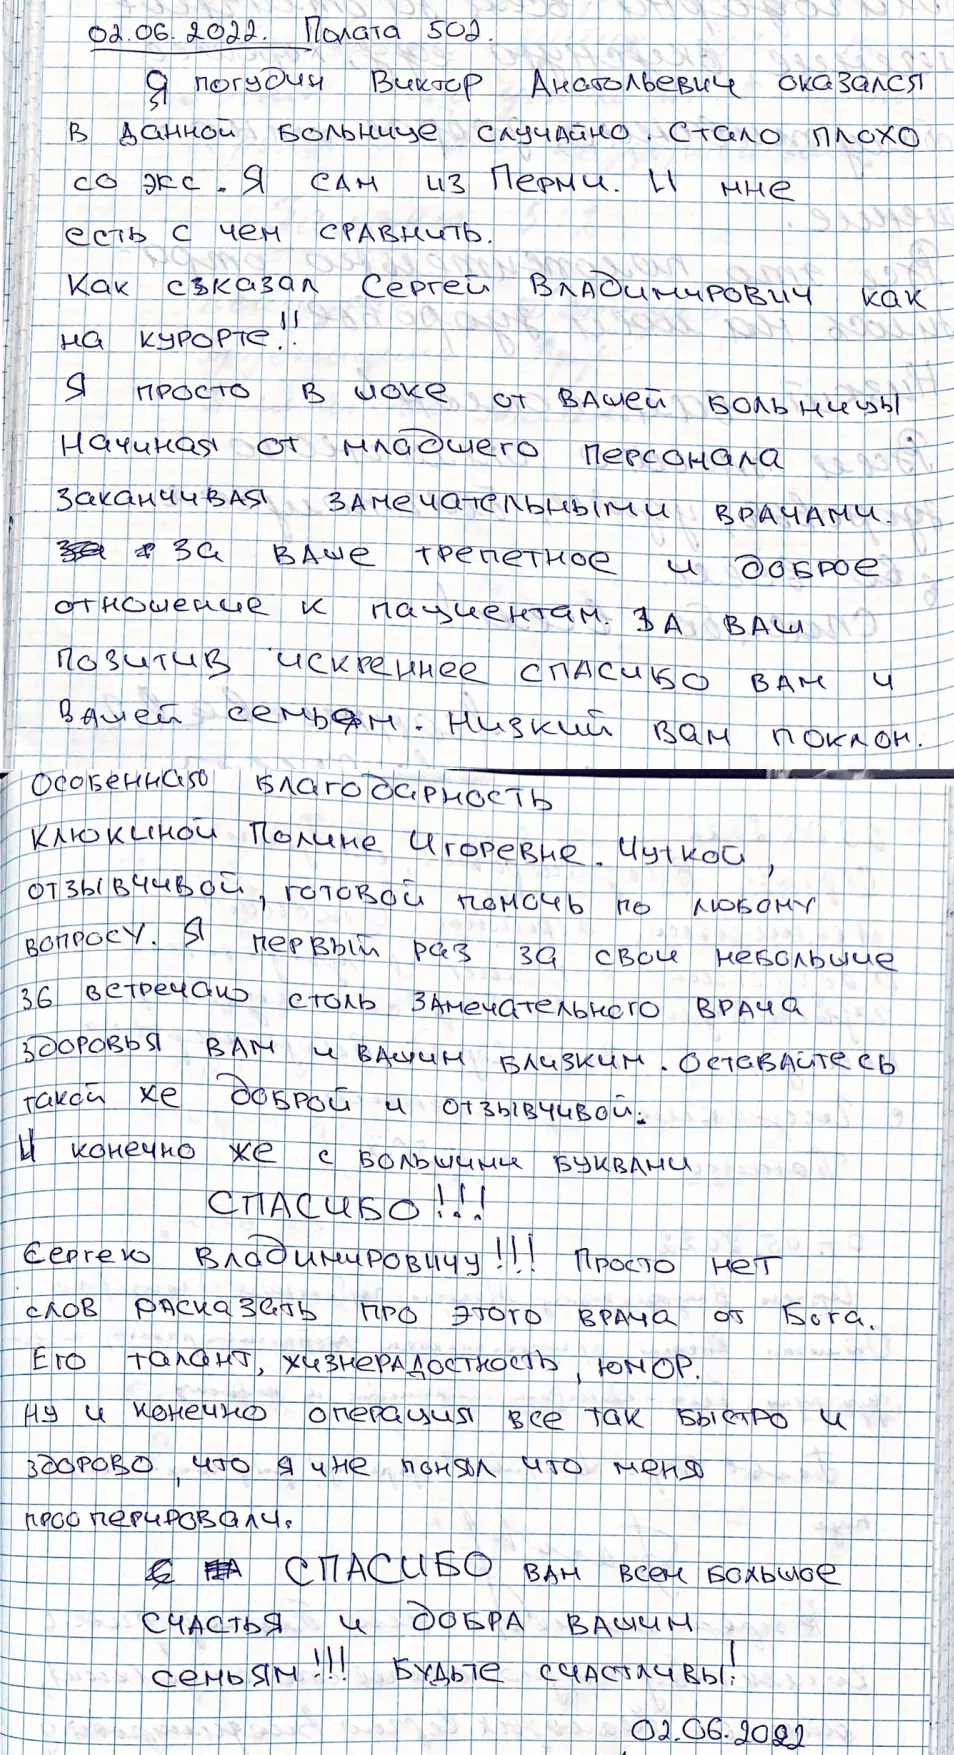 02.06.2022. Палата 502.
Я погудин Виктор Анатольевич оказался
в данной больнице случайно. Стало плохо
со экс. Я сам из Перми. И мне
есть с чем сравнить.
Как сказал Сергей Владимирович как
на курорте!!
Я просто в шоке от вашей больницы
Начиная от младшего персонала
заканчивая замечательными врачами.
За ваше трепетное и доброе
отношение к пациентам. За ваш
позитив искреннее спасибо вам и
вашей семьям. Низкий вам поклон.
Особенная благодарность
Клюкиной Полине Игоревне. Чуткой,
отзывчивой, готовой помочь по любому
вопросу. Я первый раз за свои небольшие
36 встречаю столь замечательного врача
здоровья вам и вашим близким. Оставайтесь
такой же доброй и отзывчивой.
И конечно же с большими буквами
СПАСИБО!!!
Сергею Владимировичу!!! Просто нет
слов расказать про этого врача от Бога.
Его талант, жизнерадостность, юмор.
ну и конечно операция все так быстро и
здорово, что я и не понял что меня
прооперировали.
СПАСИБО вам всем большое
счастья и добра вашим
семьям!!! Будьте счастливы!
02.06.2022